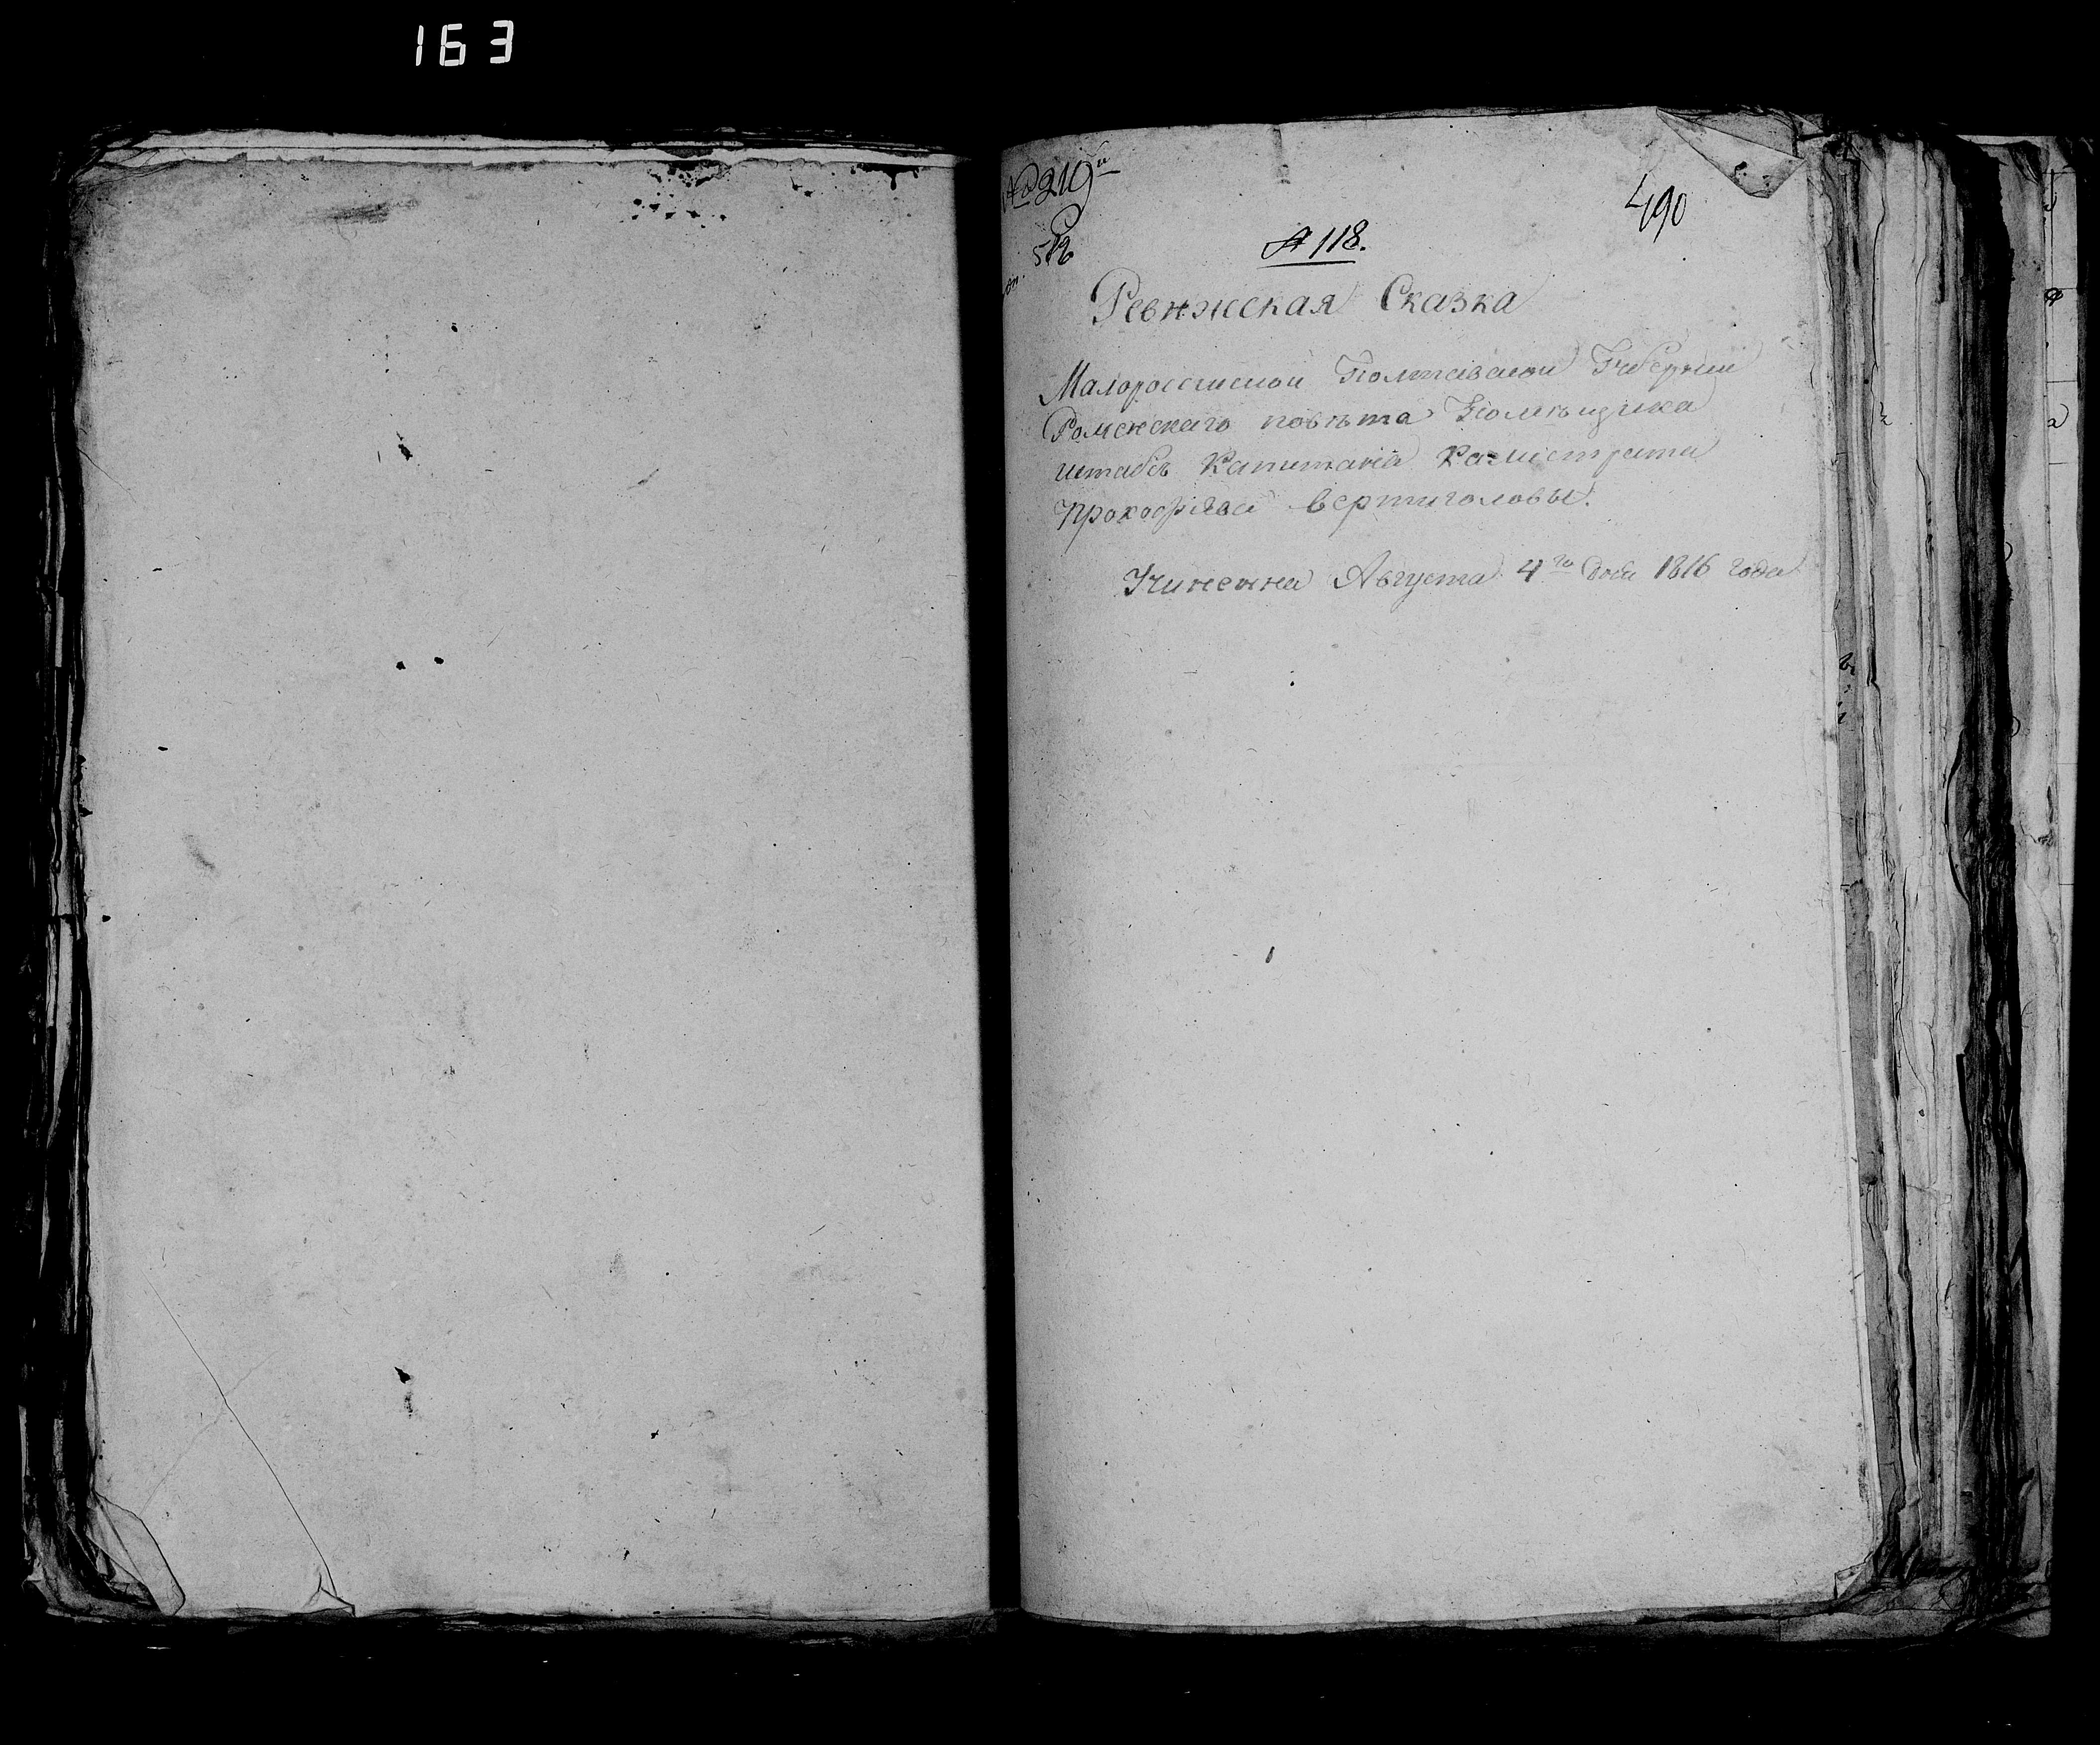 163
№ 219й
512
490
№ 118.
Ревижская Сказка
Малороссииской Полтавской Губернии
Роменскаго повѣта Помѣщика
штабсъ Капитана Калистрата
Прокофиева Вертиголовы.
Учиненна Августа 4го дня 1816 года